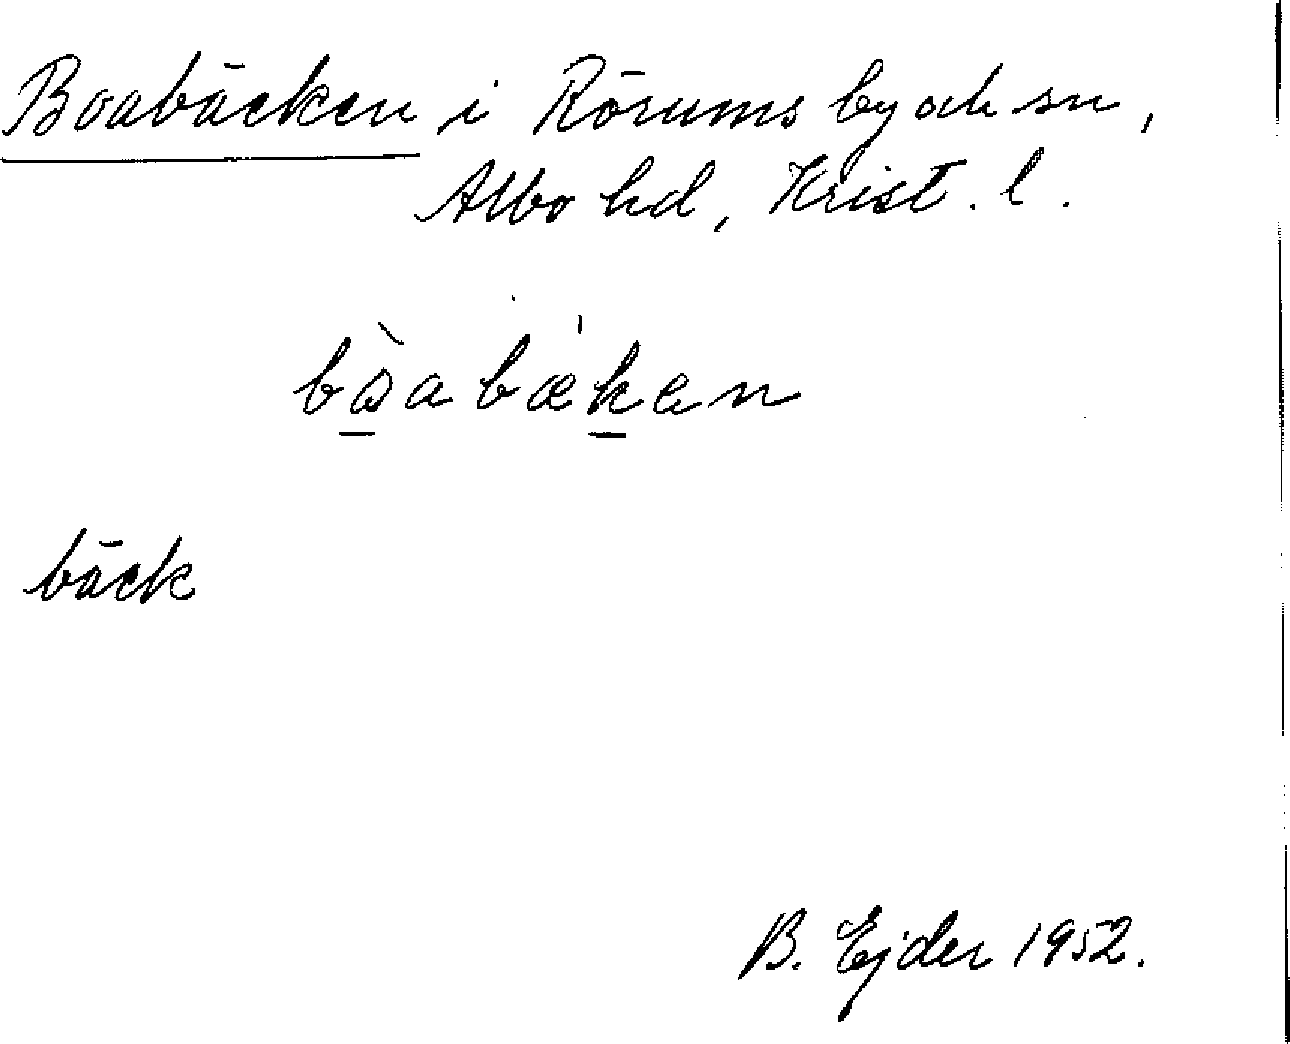 Boabäcken i Rörums by och sn,
Albo hd, Krist. l.
bòabæ̍ken
bäck
B. Ejder 1952.